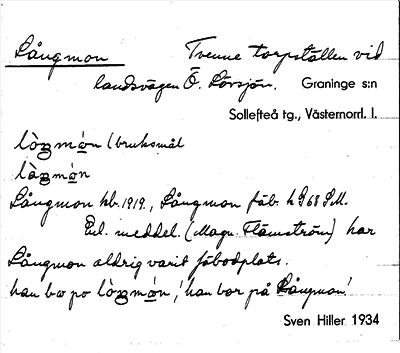 Långmon Tvenne torpställen vid
landsvägen Ö. Lövsjön. Graninge s:n
Sollefteå tg., Västernorrl. l.
lòŋmón (bruksmål
làŋmón
Långmon kb. 1919, Långmon fäb. h 968 S.M.
Enl. meddel. (Magn. Flämström) har
Långmon aldrig varit fäbodplats.
han bor po lòŋmón, 'han bor på Långmon'
Sven Hiller 1934